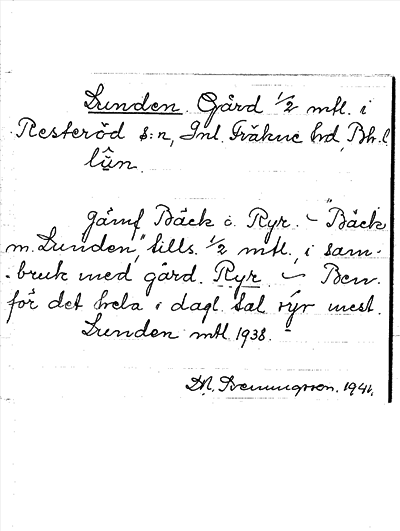 Lunden. Gård 1/2 mtl. i
Resteröd s:n, Inl. Fräkne hd, Bh. l.
lûn.
jämf Bäck o. Ryr. – "Bäck
m. Lunden", tills. 1/2 mtl., i sam-
bruk med gård. Ryr – Ben.
för det hela i dagl. tal rýr mest.
Lunden mtl. 1938.
1941.